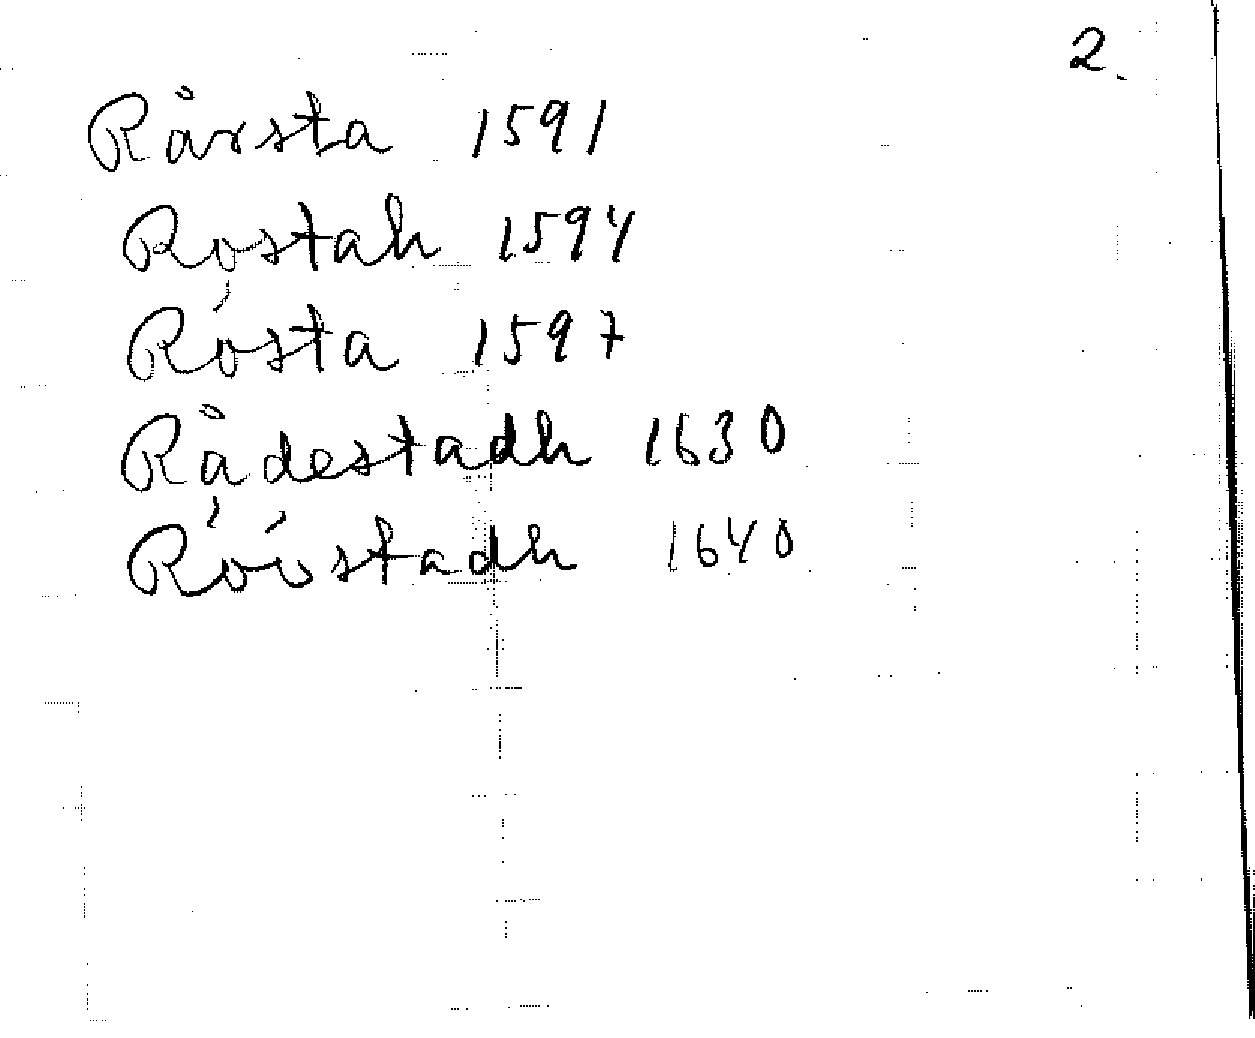 2.
Rårsta 1591
Rostah 1594
Rósta 1597
Rådestadh 1630
Róóstadh 1640